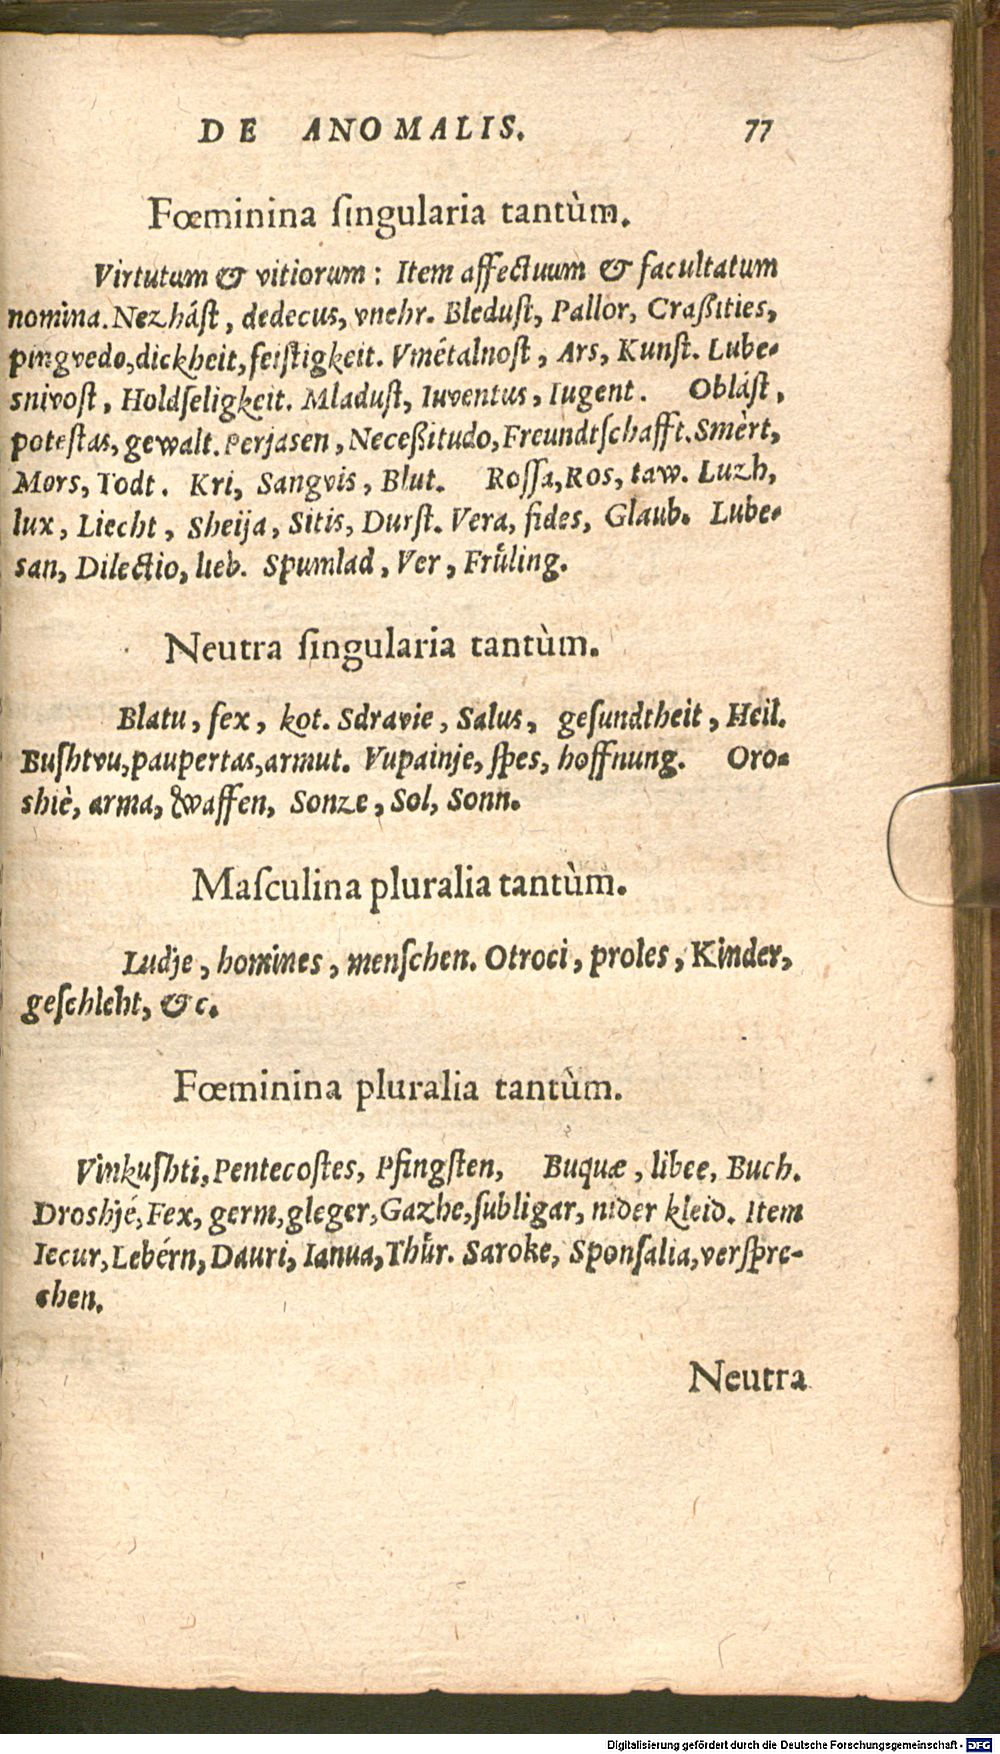 DE ANOMALIS. 77
Fœminina ſingularia tantùm.
Virtutum & vitiorum : Item affectuum & facultatum
nomina. Nezháſt, dedecus, vnehr. Bleduſt, Pallor, Craßities,
pingvedo, dickheit, feiſtigkeit. Vmétalnoſt, Ars, Kunſt. Lube-
snivoſt, Holdſeligkeit. Mladuſt, Iuventus, Iugent. Obláſt,
poteſtas, gewalt. Perjasen, Neceßitudo, Freundtſchafft. Smèrt,
Mors, Todt. Kri, Sangvis, Blut. Roſſa, Ros, taw. Luzh,
lux, Liecht, Sheija, Sitis, Durſt. Vera, fides, Glaub. Lube-
san, Dilectio, lieb. Spumlad, Ver, Früling.
Neutra ſingularia tantùm.
Blatu, fex, kot. Sdravie, Salus, geſundtheit, Heil.
Buſhtvu, paupertas, armut. Vupainje, ſpes, hoffnung. Oro-
shiè, arma, Waffen, Sonze, Sol, Sonn.
Maſculina pluralia tantùm.
Ludje, homines, menſchen. Otroci, proles, Kinder,
geſchleht, &c.
Fœminina pluralia tantùm.
Vinkuſhti, Pentecoſtes, Pfingſten, Buquæ, libee, Buch.
Droshjé, Fex, germ, gleger, Gazhe, ſubligar, nider kleid. Item
Iecur, Lebérn, Dauri, Ianua, Thür. Saroke, Sponſalia, verſpre-
chen.
Neutra
Digitalisierung gefördert durch die Deutsche Forschungsgemeinschaft - DFG